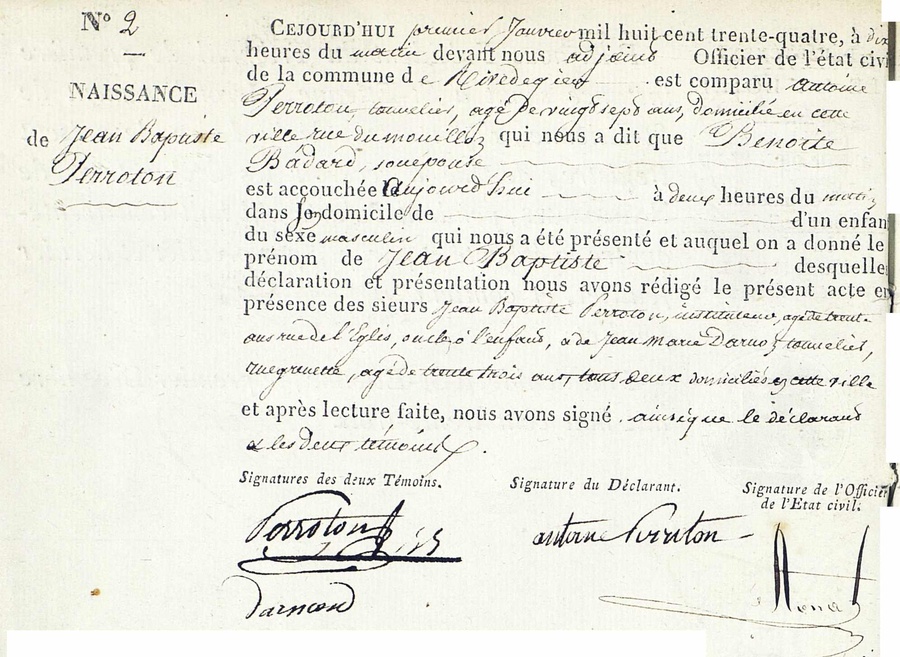 N° 2
NAISSANCE
de Jean Baptiste
Perroton
CEJOURD'HUI premier Janvier mil huit cent trente-quatre, à dix
heures du matin devant nous adjoint Officier de l'état civi
de la commune de Rivedegier est comparu antoine
Perroton, tonnelier, agé de vingt sept ans, domicilié en cette
ville rue du mouillon qui nous a dit que Benoite
Badard, son epouse
est accouchée aujourd'hui à deux heures du matin
dans son domicile de d'un enfan
du sexe masculin qui nous a été présenté et auquel on a donné le
prénom de Jean Baptiste desquelle
déclaration et présentation nous avons rédigé le présent acte en
présence des sieurs Jean Baptiste Perroton, instituteur, agé de trente
ans rue de l'Eglise, oncle à l'enfant, & de Jean Marie tonnelier,
agé de trente trois ans, tous deux domiciliés en cette ville
et après lecture faite, nous avons signé ainsi que le déclarant
& les deux témoins.
Signatures des deux Témoins.
Signature du Déclarant.
Signature de l'Officier
de l'Etat civil.
Perroton
antoine Perroton